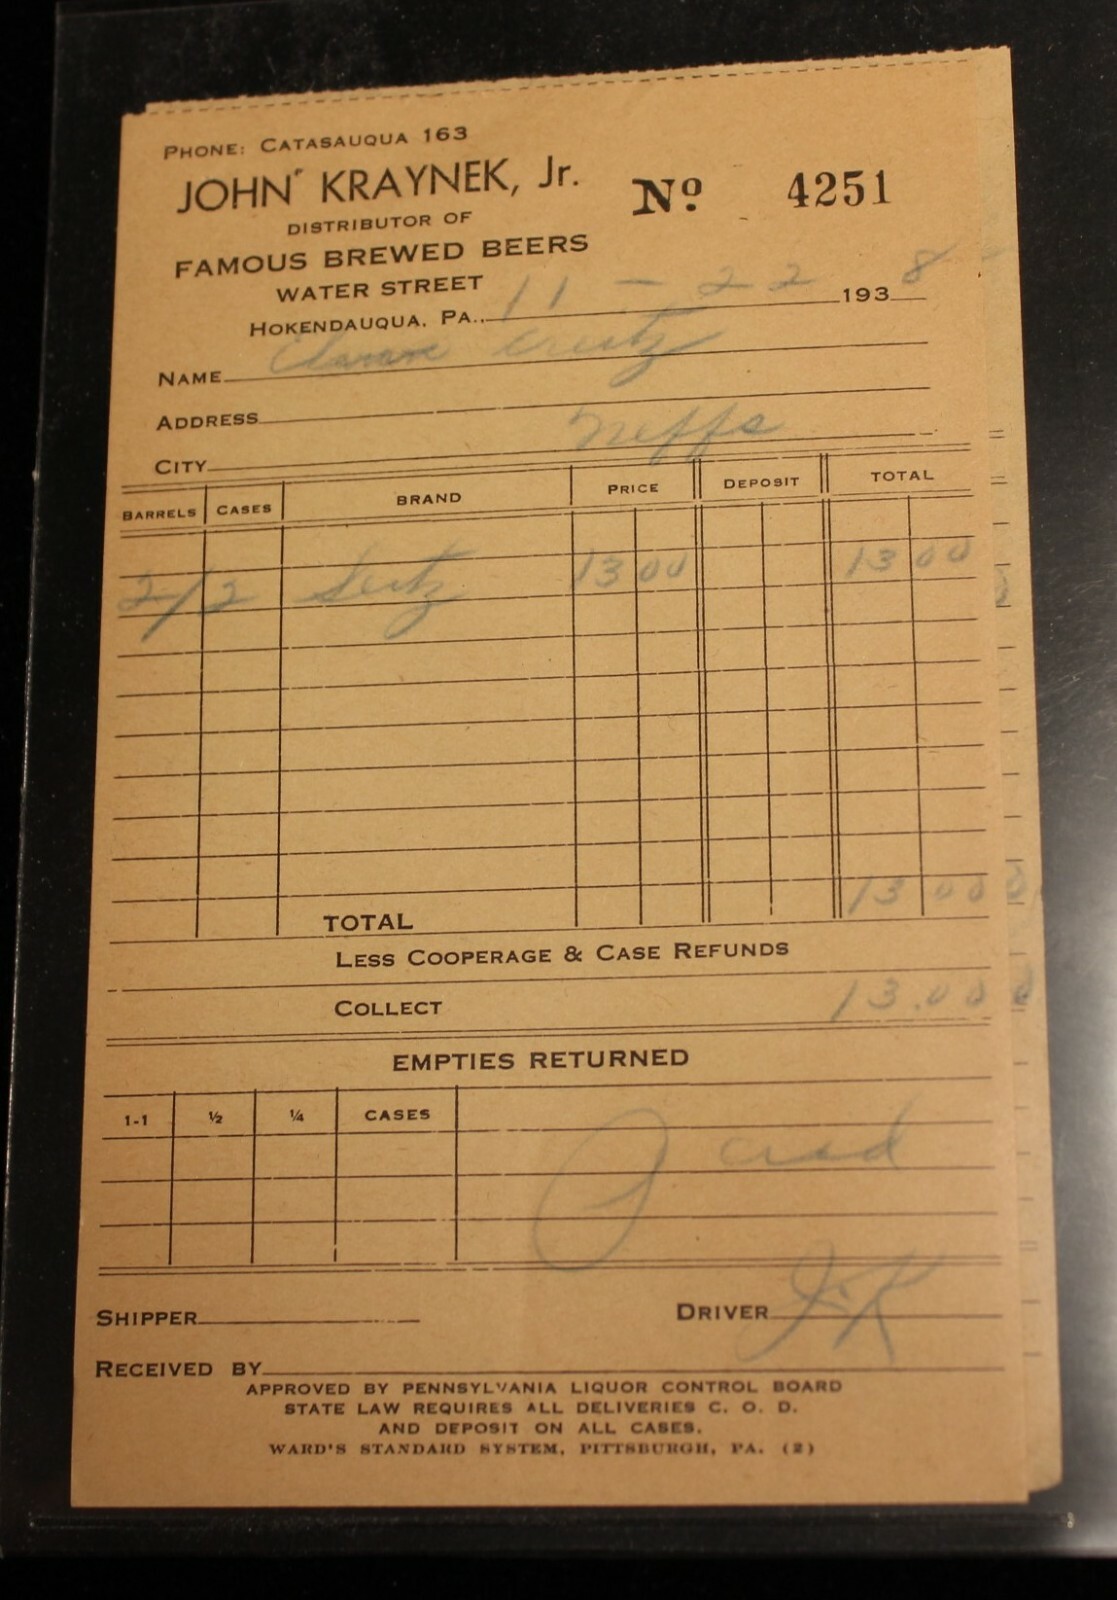 PHONE: CATASAUQUA 163
JOHN KRAYNEK, Jr.
Nº 4251
DISTRIBUTOR OF
FAMOUS BREWED BEERS
WATER STREET
HOKENDAUQUA, PA. 11 - 22 1938
NAME
ADDRESS
CITY Neffs
BARRELS CASES BRAND PRICE DEPOSIT TOTAL
2/2 Seitz 13 00 13 00
TOTAL 13 00
LESS COOPERAGE & CASE REFUNDS
COLLECT 13.00
EMPTIES RETURNED
1-1 ½ ¼ CASES
SHIPPER DRIVER JK
RECEIVED BY
APPROVED BY PENNSYLVANIA LIQUOR CONTROL BOARD
STATE LAW REQUIRES ALL DELIVERIES C. O. D.
AND DEPOSIT ON ALL CASES.
WARD'S STANDARD SYSTEM, PITTSBURGH, PA. (2)